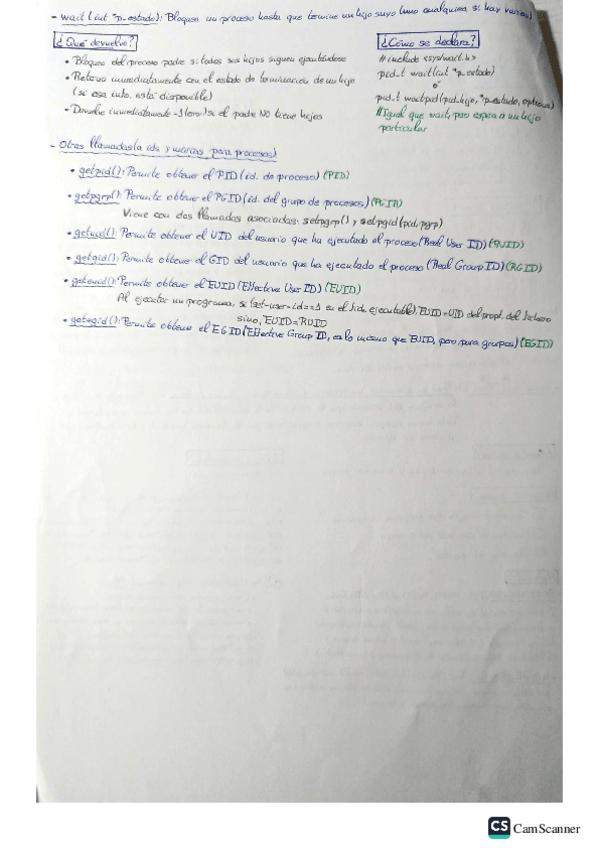 - wait (int *p_estado): Bloquea un proceso hasta que termine un hijo suyo (uno cualquiera si hay varios)
¿Qué devuelve?
• Bloqueo del proceso padre si todos sus hijos siguen ejecutándose
• Retorno inmediatamente con el estado de terminación de un hijo
(si esa info. está disponible)
• Devuelve inmediatamente -1 (error) si el padre NO tiene hijos
¿Cómo se declara?
#include <sys/wait.h>
pid_t wait(int *p_estado)
o
pid_t waitpid(pid_hijo, *p_estado, options)
#Igual que wait, pero espera a un hijo
particular
- Otras llamadas (a ids y para procesos)
• getpid(): Permite obtener el PID (id. de proceso) (PID)
• getpgrp(): Permite obtener el PGID (id. del grupo de procesos) (PGID)
Viene con dos llamadas asociadas: setpgrp() y setpgid(pid, pgrp)
• getuid(): Permite obtener el UID del usuario que ha ejecutado el proceso (Real User ID) (RUID)
• getgid(): Permite obtener el GID del usuario que ha ejecutado el proceso (Real Group ID) (RGID)
• geteuid(): Permite obtener el EUID (Effective User ID) (EUID)
Al ejecutar un programa, si (set-user-id==1 en el fich. ejecutable), EUID=UID del propt. del fichero
sino, EUID=RUID
• getegid(): Permite obtener el EGID (Effective Group ID, es lo mismo que EUID, pero para grupos) (EGID)
CS CamScanner